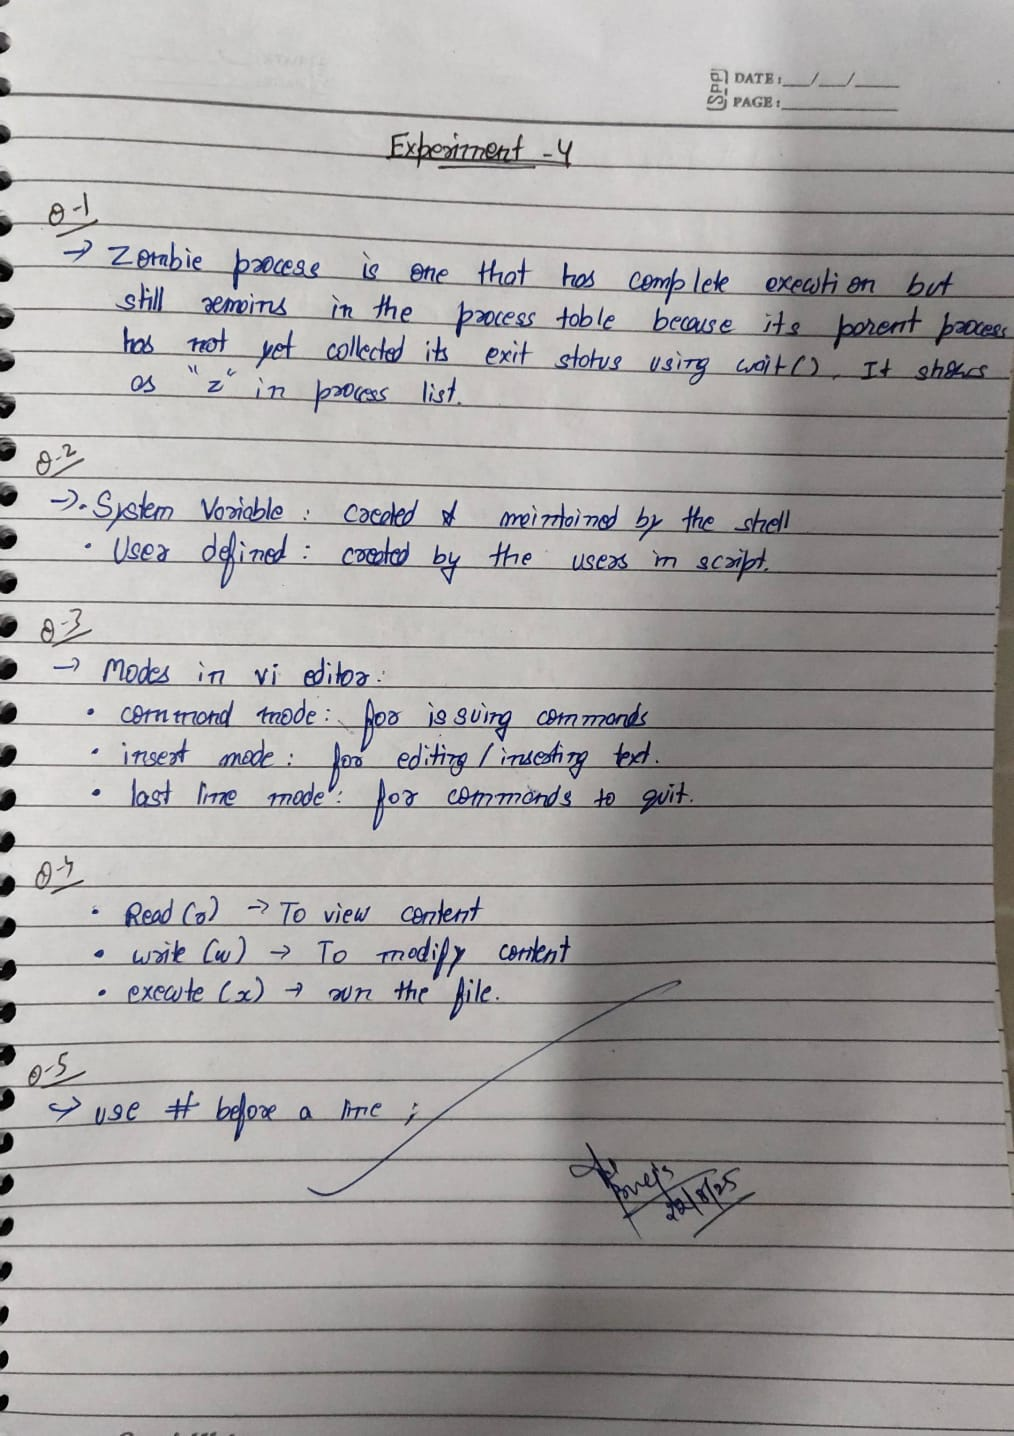 DATE: __/__/____
PAGE:
Experiment - 4
Q-1
→ Zombie process is one that has complete execution but
still remains in the process table because its parent process
has not yet collected its exit status using wait(). It shows
as "z" in process list.
Q-2
→ • System Variable : created & maintained by the shell
• User defined : created by the users in script.
Q-3
→ Modes in vi editor:
• command mode : for issuing commands
• insert mode : for editing / inserting text.
• last line mode : for commands to quit.
Q-4
• Read (r) → To view content
• write (w) → To modify content
• execute (x) → run the file.
Q-5
→ use # before a line ;
22/8/25